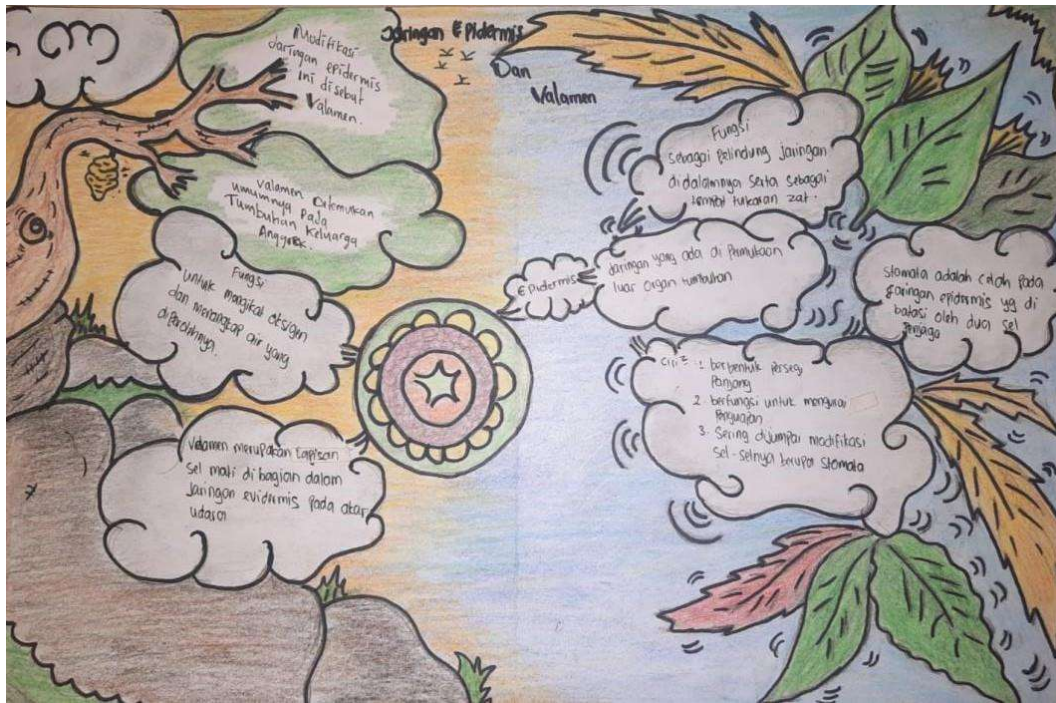 Jaringan Epidermis
Dan
Valamen
Modifikasi
jaringan epidermis
ini disebut
Valamen.
Valamen Ditemukan
umumnya pada
Tumbuhan Keluarga
Anggrek.
Fungsi
untuk mengikat oksigen
dan menangkap air yang
diperolehnya.
Velamen merupakan lapisan
sel mati di bagian dalam
Jaringan evidermis pada akar
udara
Fungsi
sebagai Pelindung jaringan
didalamnya serta sebagai
tempat tukaran zat.
Epidermis
Jaringan yang ada di Permukaan
luar organ tumbuhan
Stomata adalah celah pada
Jaringan epidermis yg di
batasi oleh dua sel
Penjaga
Ciri² : 1 berbentuk Persegi
Panjang
2. berfungsi untuk mengurai
Penguapan
3. Sering dijumpai modifikasi
sel-selnya berupa Stomata